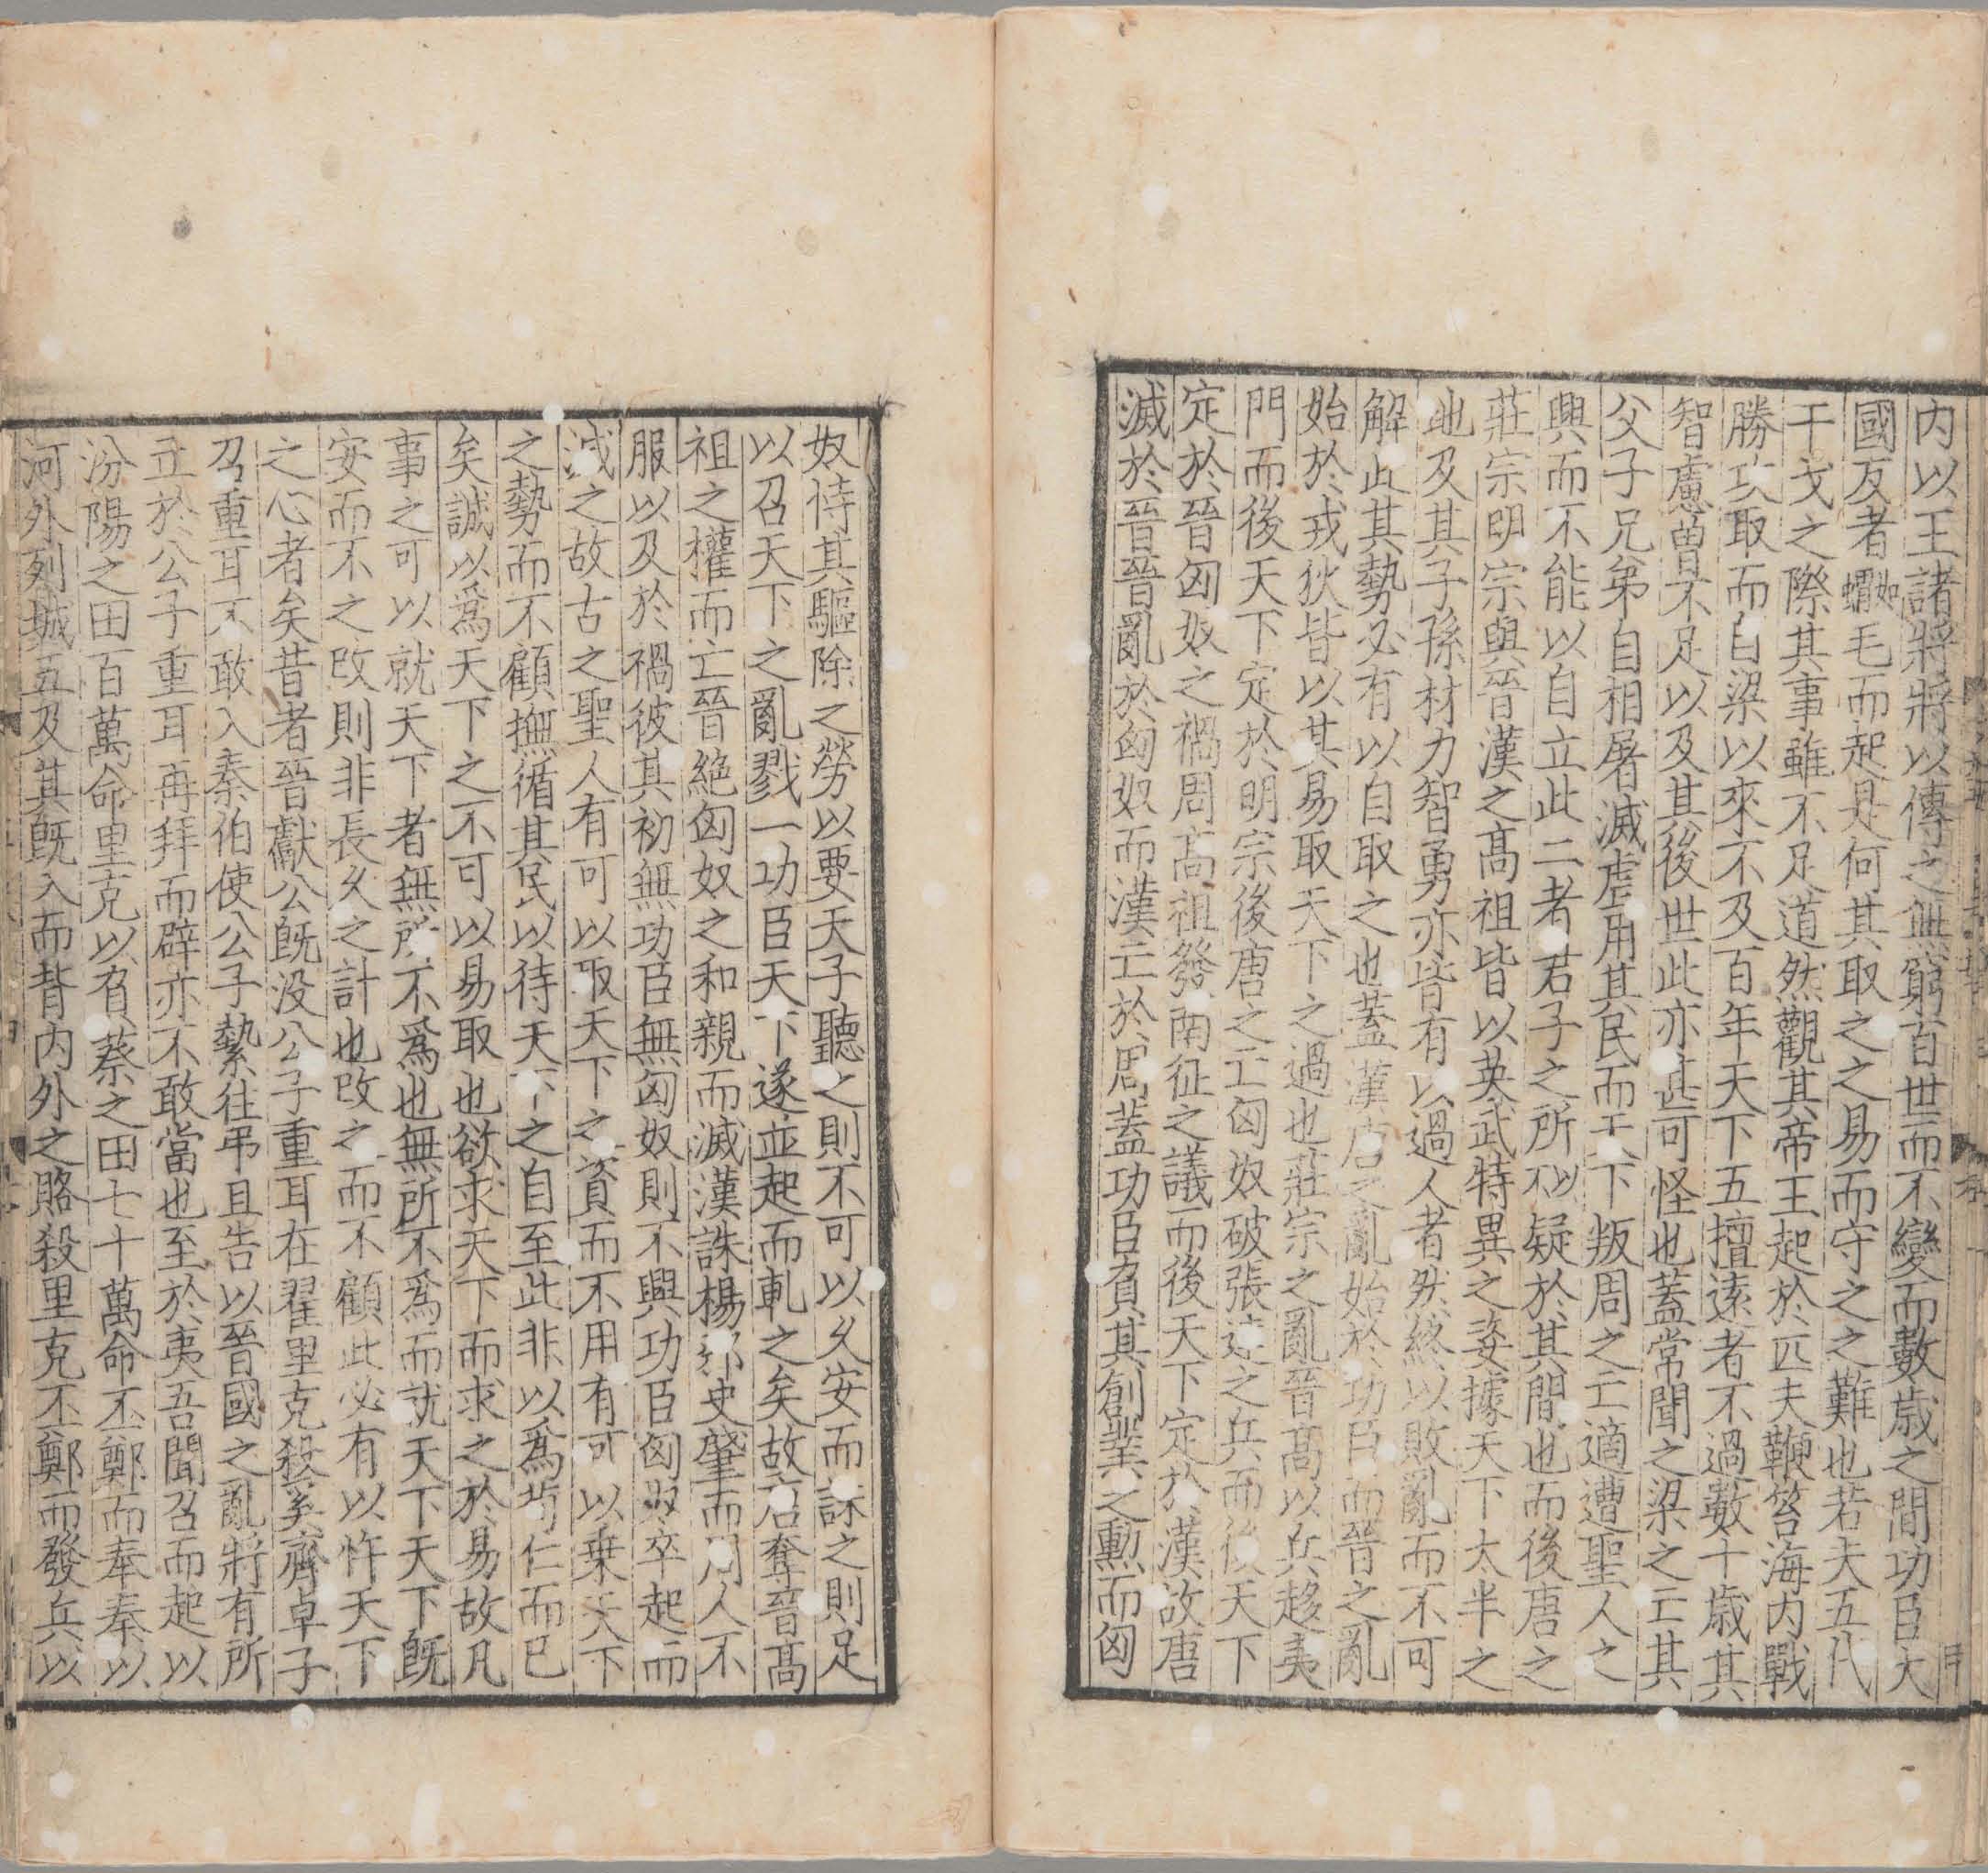 内以王諸將將以傳之無窮百世而不變而數歲之間功臣大
國反者如蝟毛而起是何其取之之易而守之之難也若夫五代
干戈之際其事雖不足道然觀其帝王起於匹夫鞭笞海内戰
勝攻取而自梁以來不及百年天下五擅逺者不過數十歲其
智慮曽不足以及其後世此亦甚可怪也蓋常聞之梁之亡其
父子兄弟自相屠滅虐用其民而天下叛周之亡適遭聖人之
興而不能以自立此二者君子之所以不疑於其間也而後唐之
莊宗明宗與晉漢之髙祖皆以英武特異之姿據天下太半之
地及其子孫材力智勇亦皆有以過人者然終以敗亂而不可
解此其勢必有以自取之也蓋漢唐之亂始於功臣而晉之亂
始於戎狄皆以其易取天下之過也莊宗之亂晉髙以兵趍夷
門而後天下定於明宗後唐之亡匈奴破張達之兵而後天下
定於晉匈奴之禍周髙祖發南征之議而後天下定於漢故唐
滅於晉晉亂於匈奴而漢亡於周蓋功臣負其創業之勲而匈
奴恃其驅除之勞以要天子聽之則不可以乆安而誅之則足
以召天下之亂戮一功臣天下遂並起而軋之矣故唐奪晉髙
祖之權而亡晉絶匈奴之和親而滅漢誅楊邠史肇而周人不
服以及於禍彼其初無功臣無匈奴則不興功臣匈奴卒起而
滅之故古之聖人有可以取天下之資而不用有可以乗天下
之勢而不顧撫循其民以待天下之自至此非以爲茍仁而已
矣誠以爲天下之不可以易取也欲求天下而求之於易故凡
事之可以就天下者無所不爲也無所不爲而就天下天下既
安而不之改則非長乆之計也改之而不顧此必有以忤天下
之心者矣昔者晉獻公既没公子重耳在翟里克殺奚齊卓子
召重耳不敢入秦伯使公子縶往弔且告以晉國之亂將有所
立於公子重耳再拜而辟亦不敢當也至於夷吾聞召而起以
汾陽之田百萬命里克以負蔡之田七十萬命丕鄭而奉秦以
河外列城五及其既入而背内外之賂殺里克丕鄭而發兵以